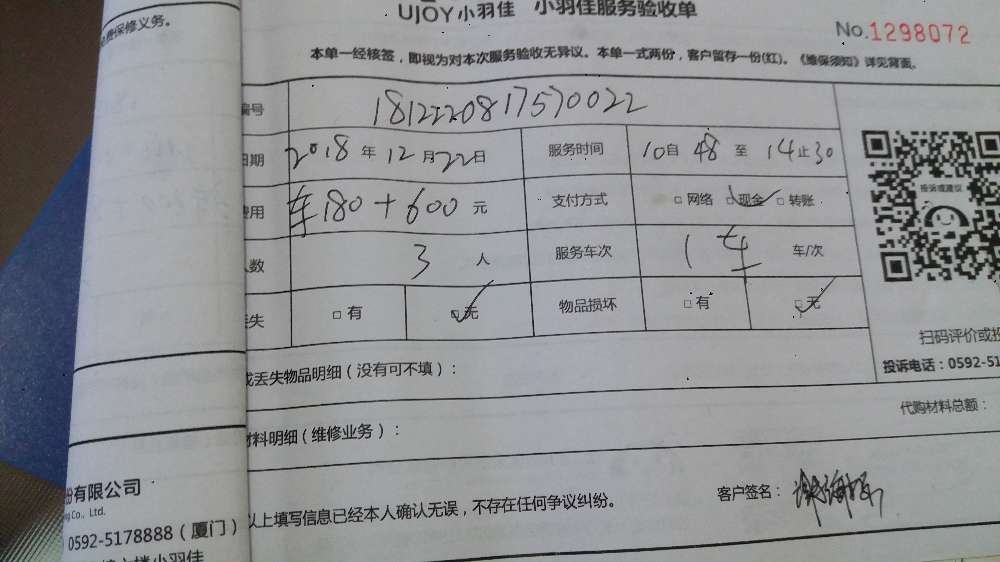 费保修义务。
UJOY小羽佳 小羽佳服务验收单
No.1298072
本单一经核签，即视为对本次服务验收无异议。本单一式两份，客户留存一份(红)。《维保须知》详见背面。
编号 1812220817570022
日期 2018年12月22日 服务时间 10自48至14止30
费用 车180+600元 支付方式 □网络 □现金 □转账
人数 3人 服务车次 1车 车/次
丢失 □有 □无 物品损坏 □有 □无
投诉或建议
扫码评价或投
投诉电话：0592-51
或丢失物品明细（没有可不填）：
代购材料总额：
材料明细（维修业务）：
份有限公司
Co., Ltd.
0592-5178888（厦门）
楼小羽佳
以上填写信息已经本人确认无误，不存在任何争议纠纷。
客户签名：